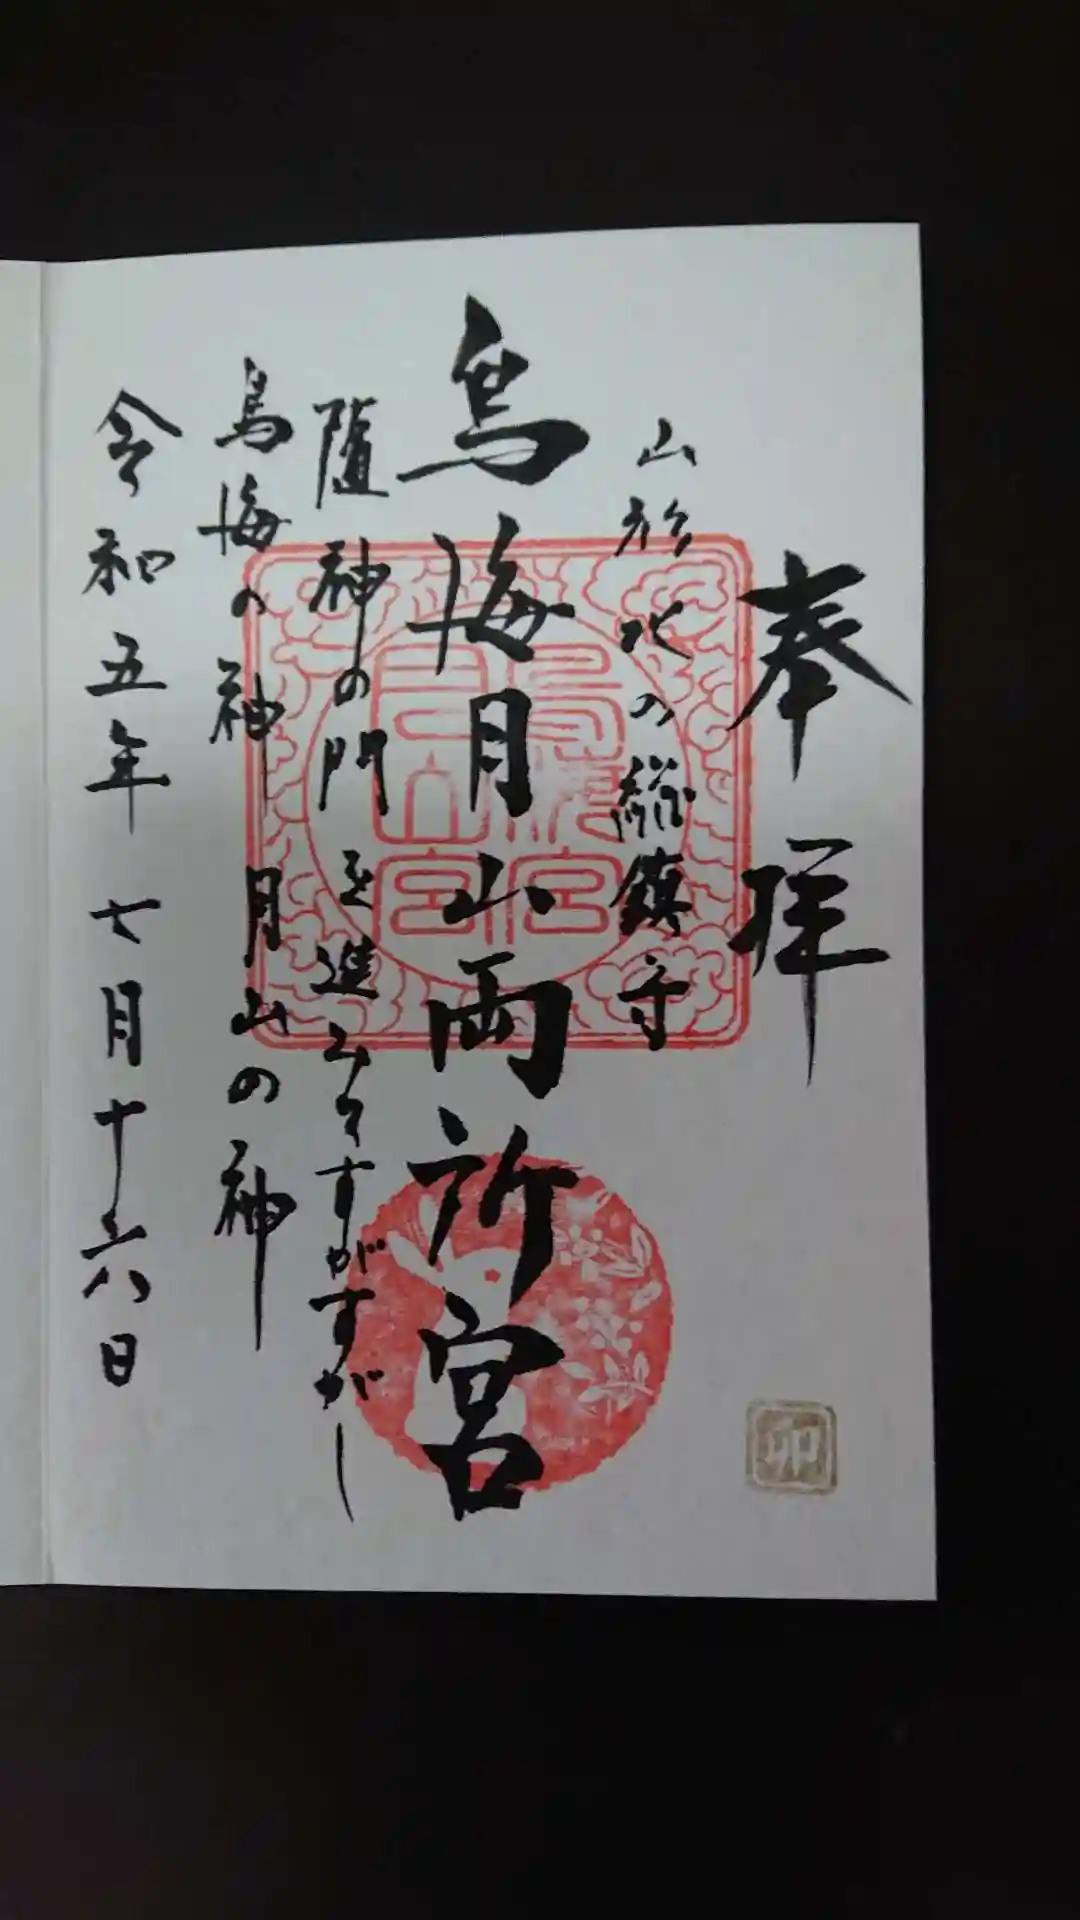 奉拝
山形北の総鎮守
鳥海月山両所宮
随神の門を進みてすがすがし
鳥海の神月山の神
令和五年七月十六日
卯